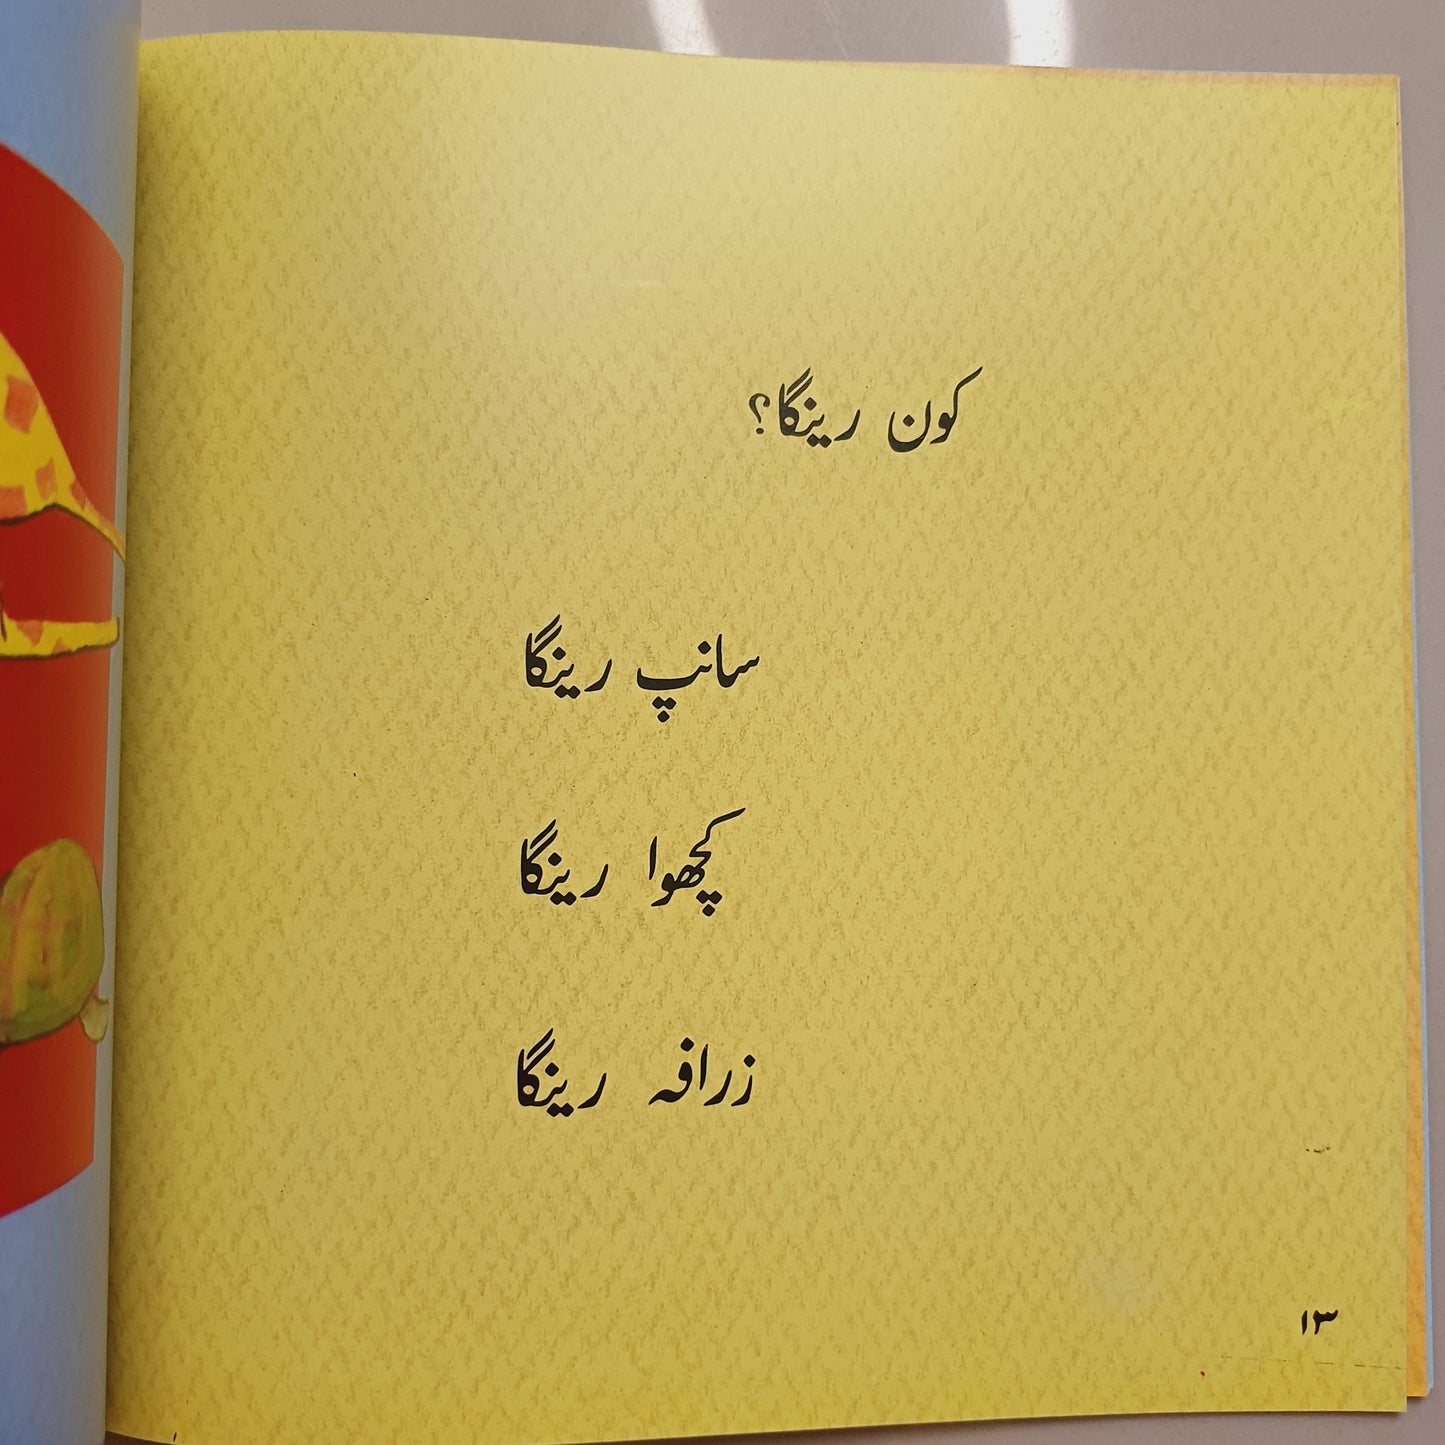 کون رینگا؟
سانپ رینگا
کچھوا رینگا
زرافہ رینگا
۱۳